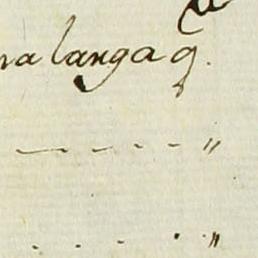 na langa q.
- - - - - "
- - - - "